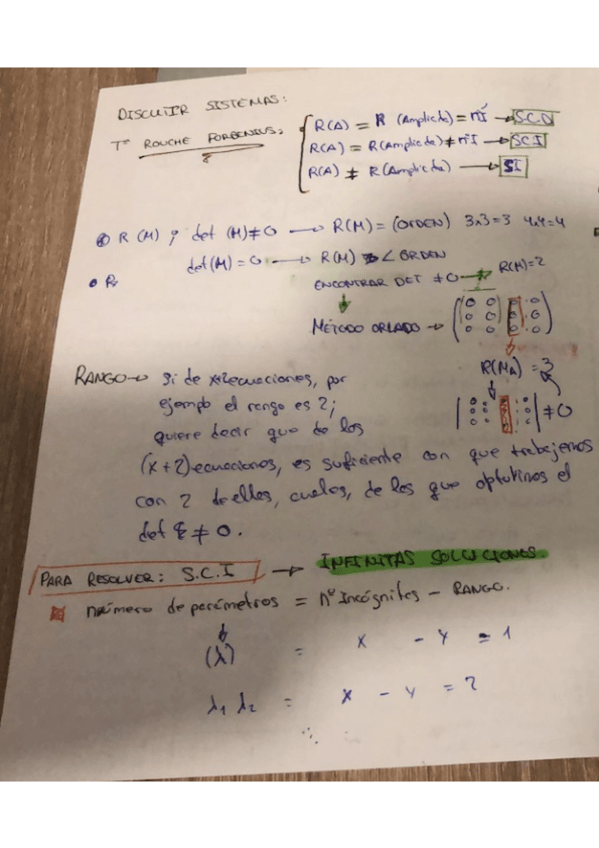 DISCUTIR SISTEMAS:
Tª ROUCHE FORBENIUS:
R(A) = R (Ampliada) = nºI → S.C.D
R(A) = R(Ampliada) ≠ nºI → SCI
R(A) ≠ R(Ampliada) → SI
R (M) ; det (M) ≠ 0 → R(M) = (ORDEN) 3x3=3 4x4=4
det(M) = 0 → R(M) < ORDEN
• R
ENCONTRAR DET ≠ 0 → R(M)=2
MÉTODO ORLADO →
R(MA) = 3
≠ 0
RANGO → Si de ecuaciones, por
ejempo el rango es 2;
quiere decir que de los
(x+2) ecuaciones, es suficiente con que trabajemos
con 2 de ellas, cuales, de las que optubimos el
det ≠ 0.
PARA RESOLVER: S.C.I → INFINITAS SOLUCIONES.
número de parámetros = nº Incógnitas - RANGO.
(λ) = x - y = 1
λ1 λ2 = x - y = 2